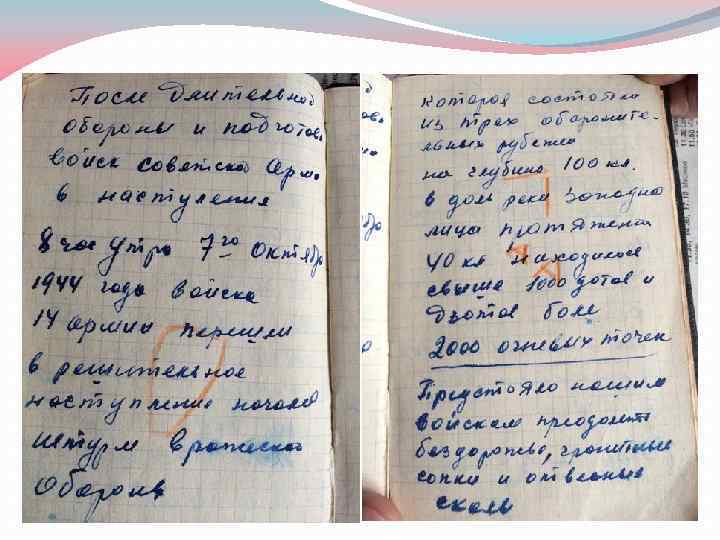 После длительной
обороны и подготов.
войск советской арм.
в наступления
8 час утра 7го октября
1944 года войска
14 армии перешли
в решительное
наступление начало
штурм вражеской
обороны
которая состояла
из трех обороните-
льных рубежа
на глубине 100 кл.
в доль реки западно
лица протяжения
40 кл находилося
свыше 1000 дотов и
дзотов боле
2000 огневых точек
Предстояло нашим
войскам преодолеть
бездорожье, гранитные
сопки и отвесные
скалы